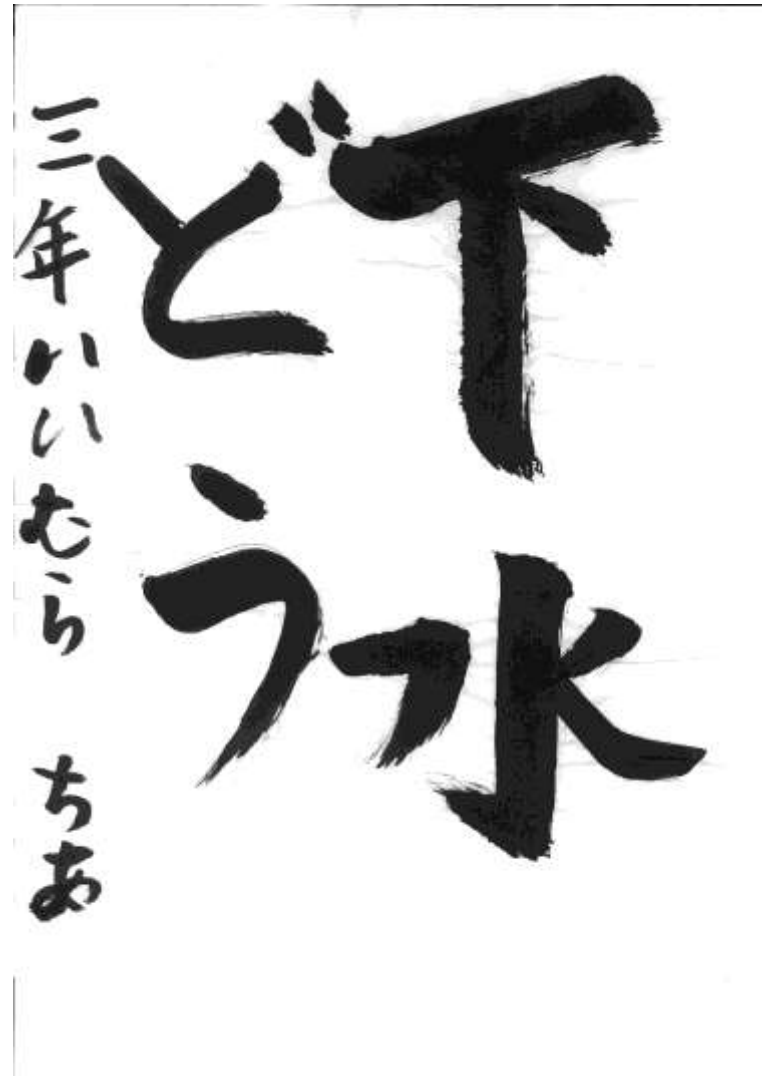 下水
どう
三年 いいむら ちあ